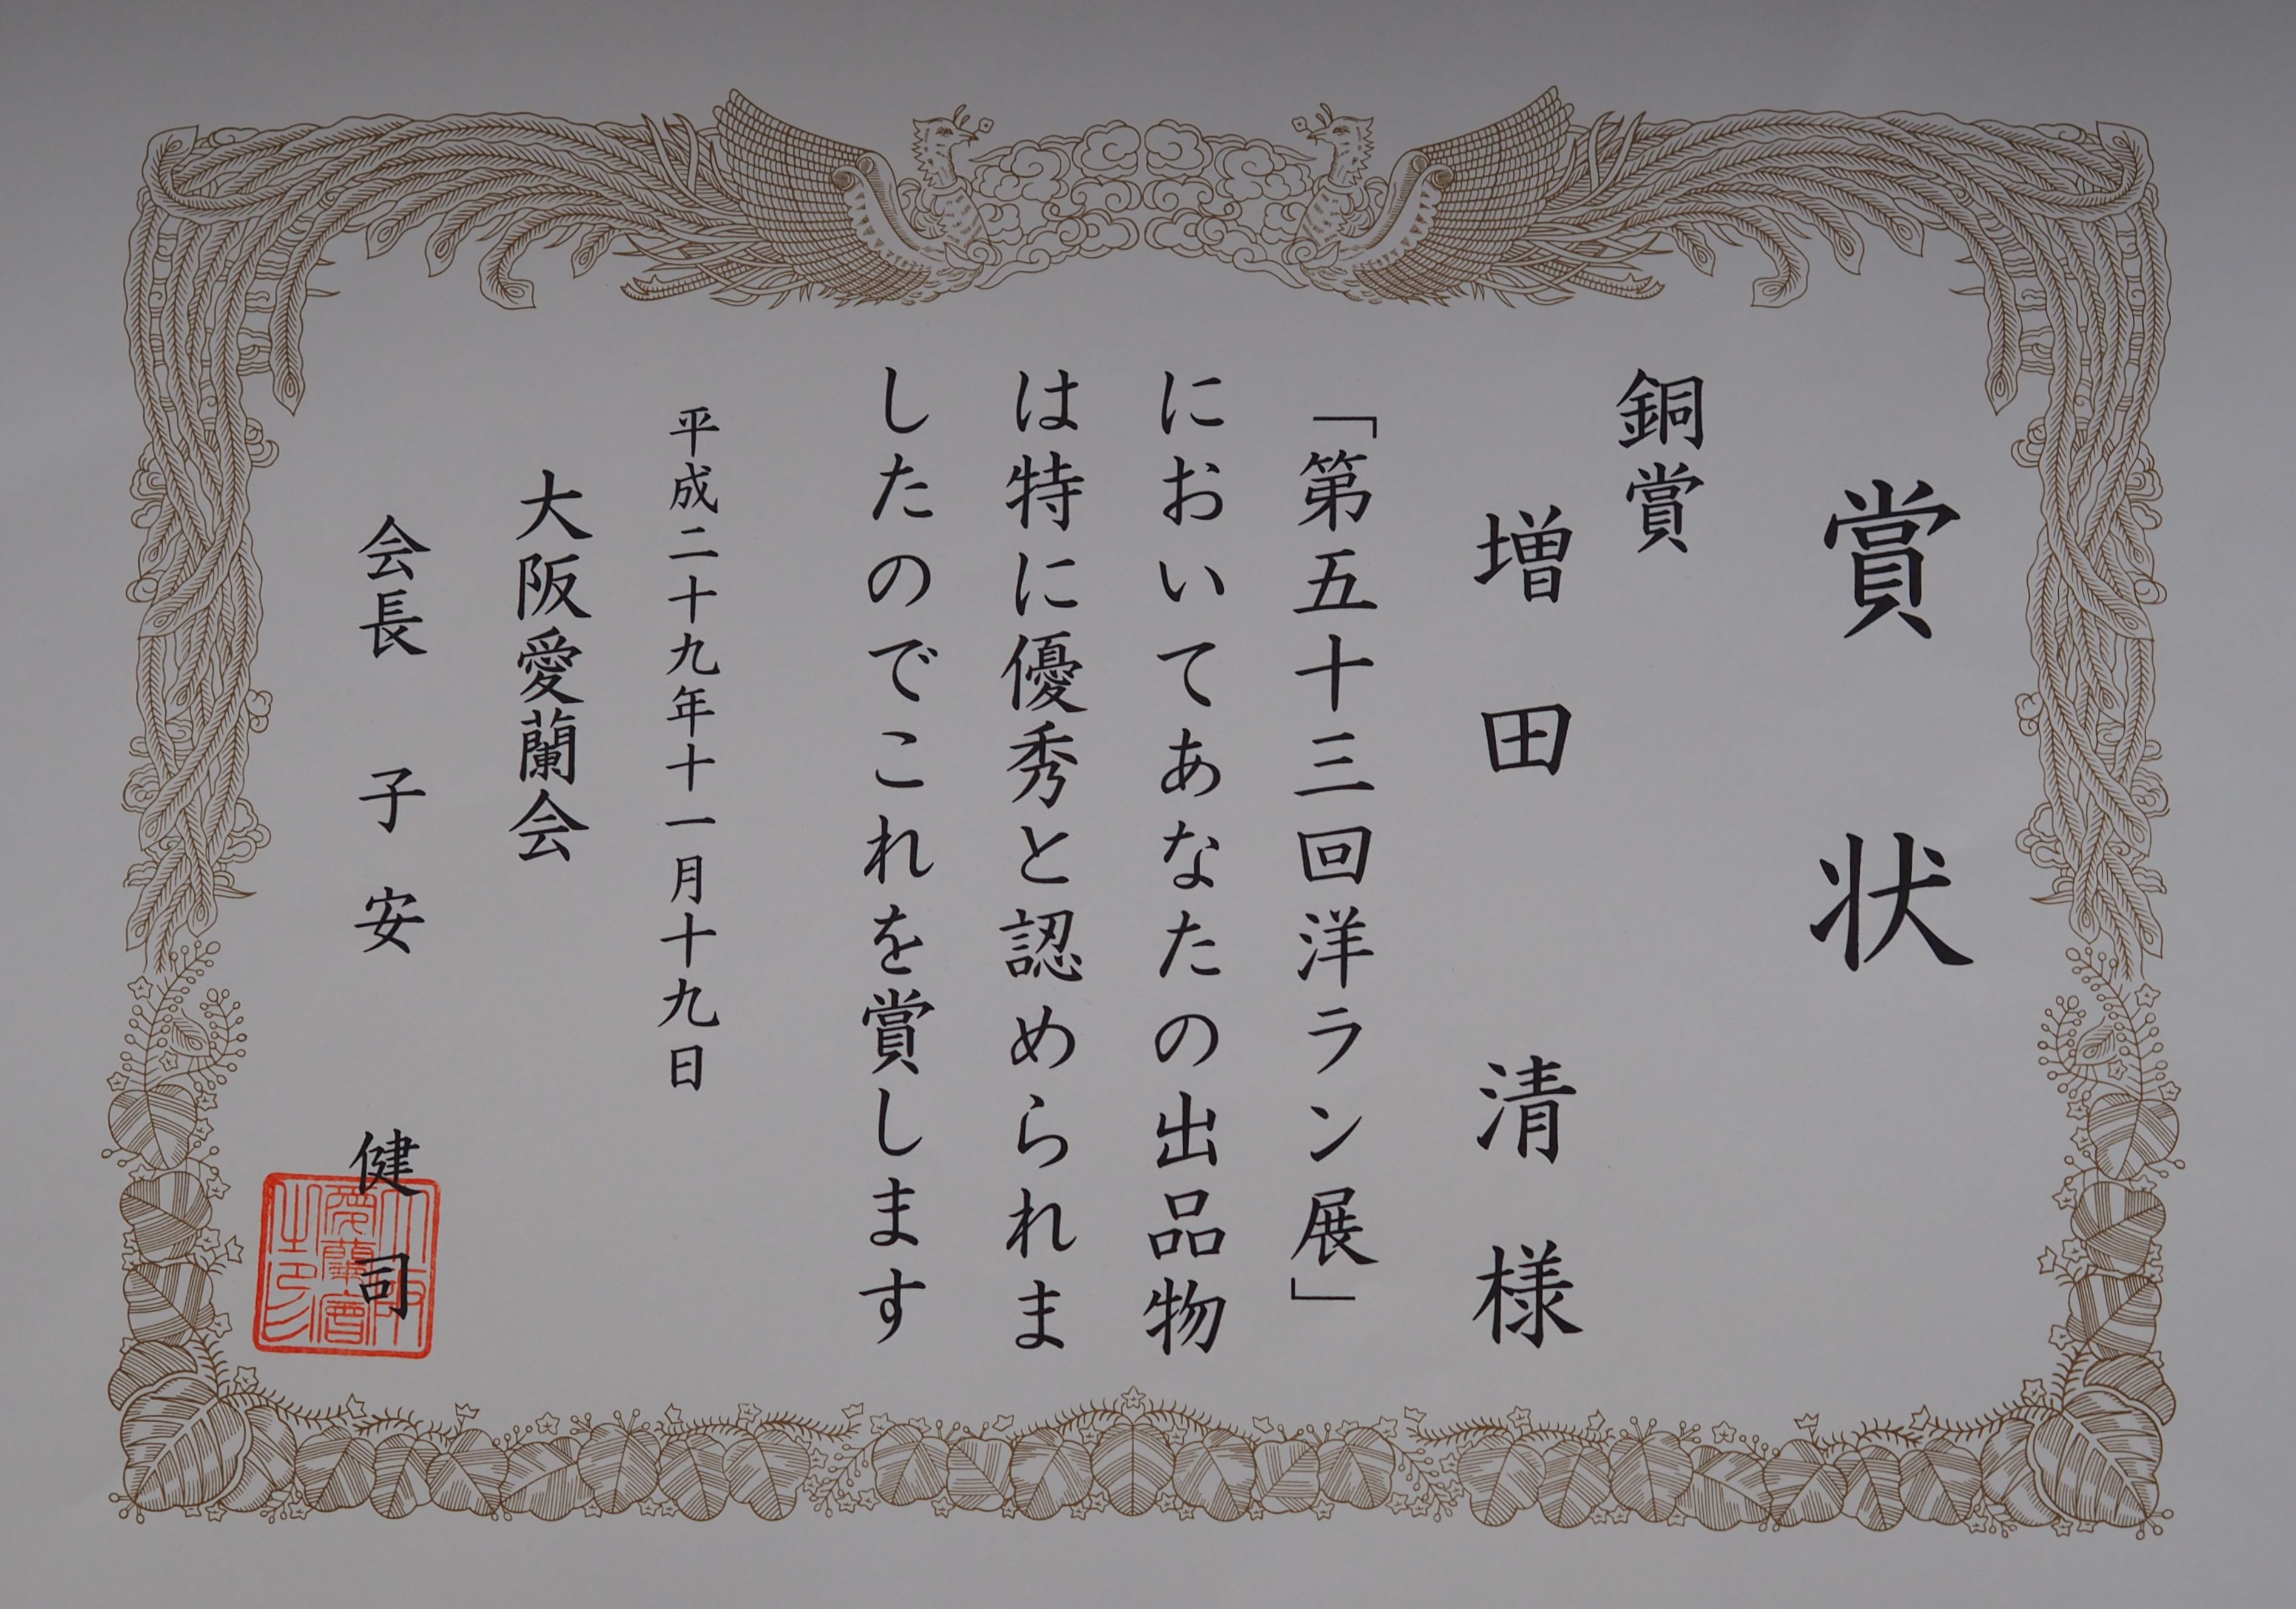 賞状
銅賞
増田 清 様
「第五十三回洋ラン展」
においてあなたの出品物
は特に優秀と認められま
したのでこれを賞します
平成二十九年十一月十九日
大阪愛蘭会
会長 子安 健司
大阪
愛蘭會
之印